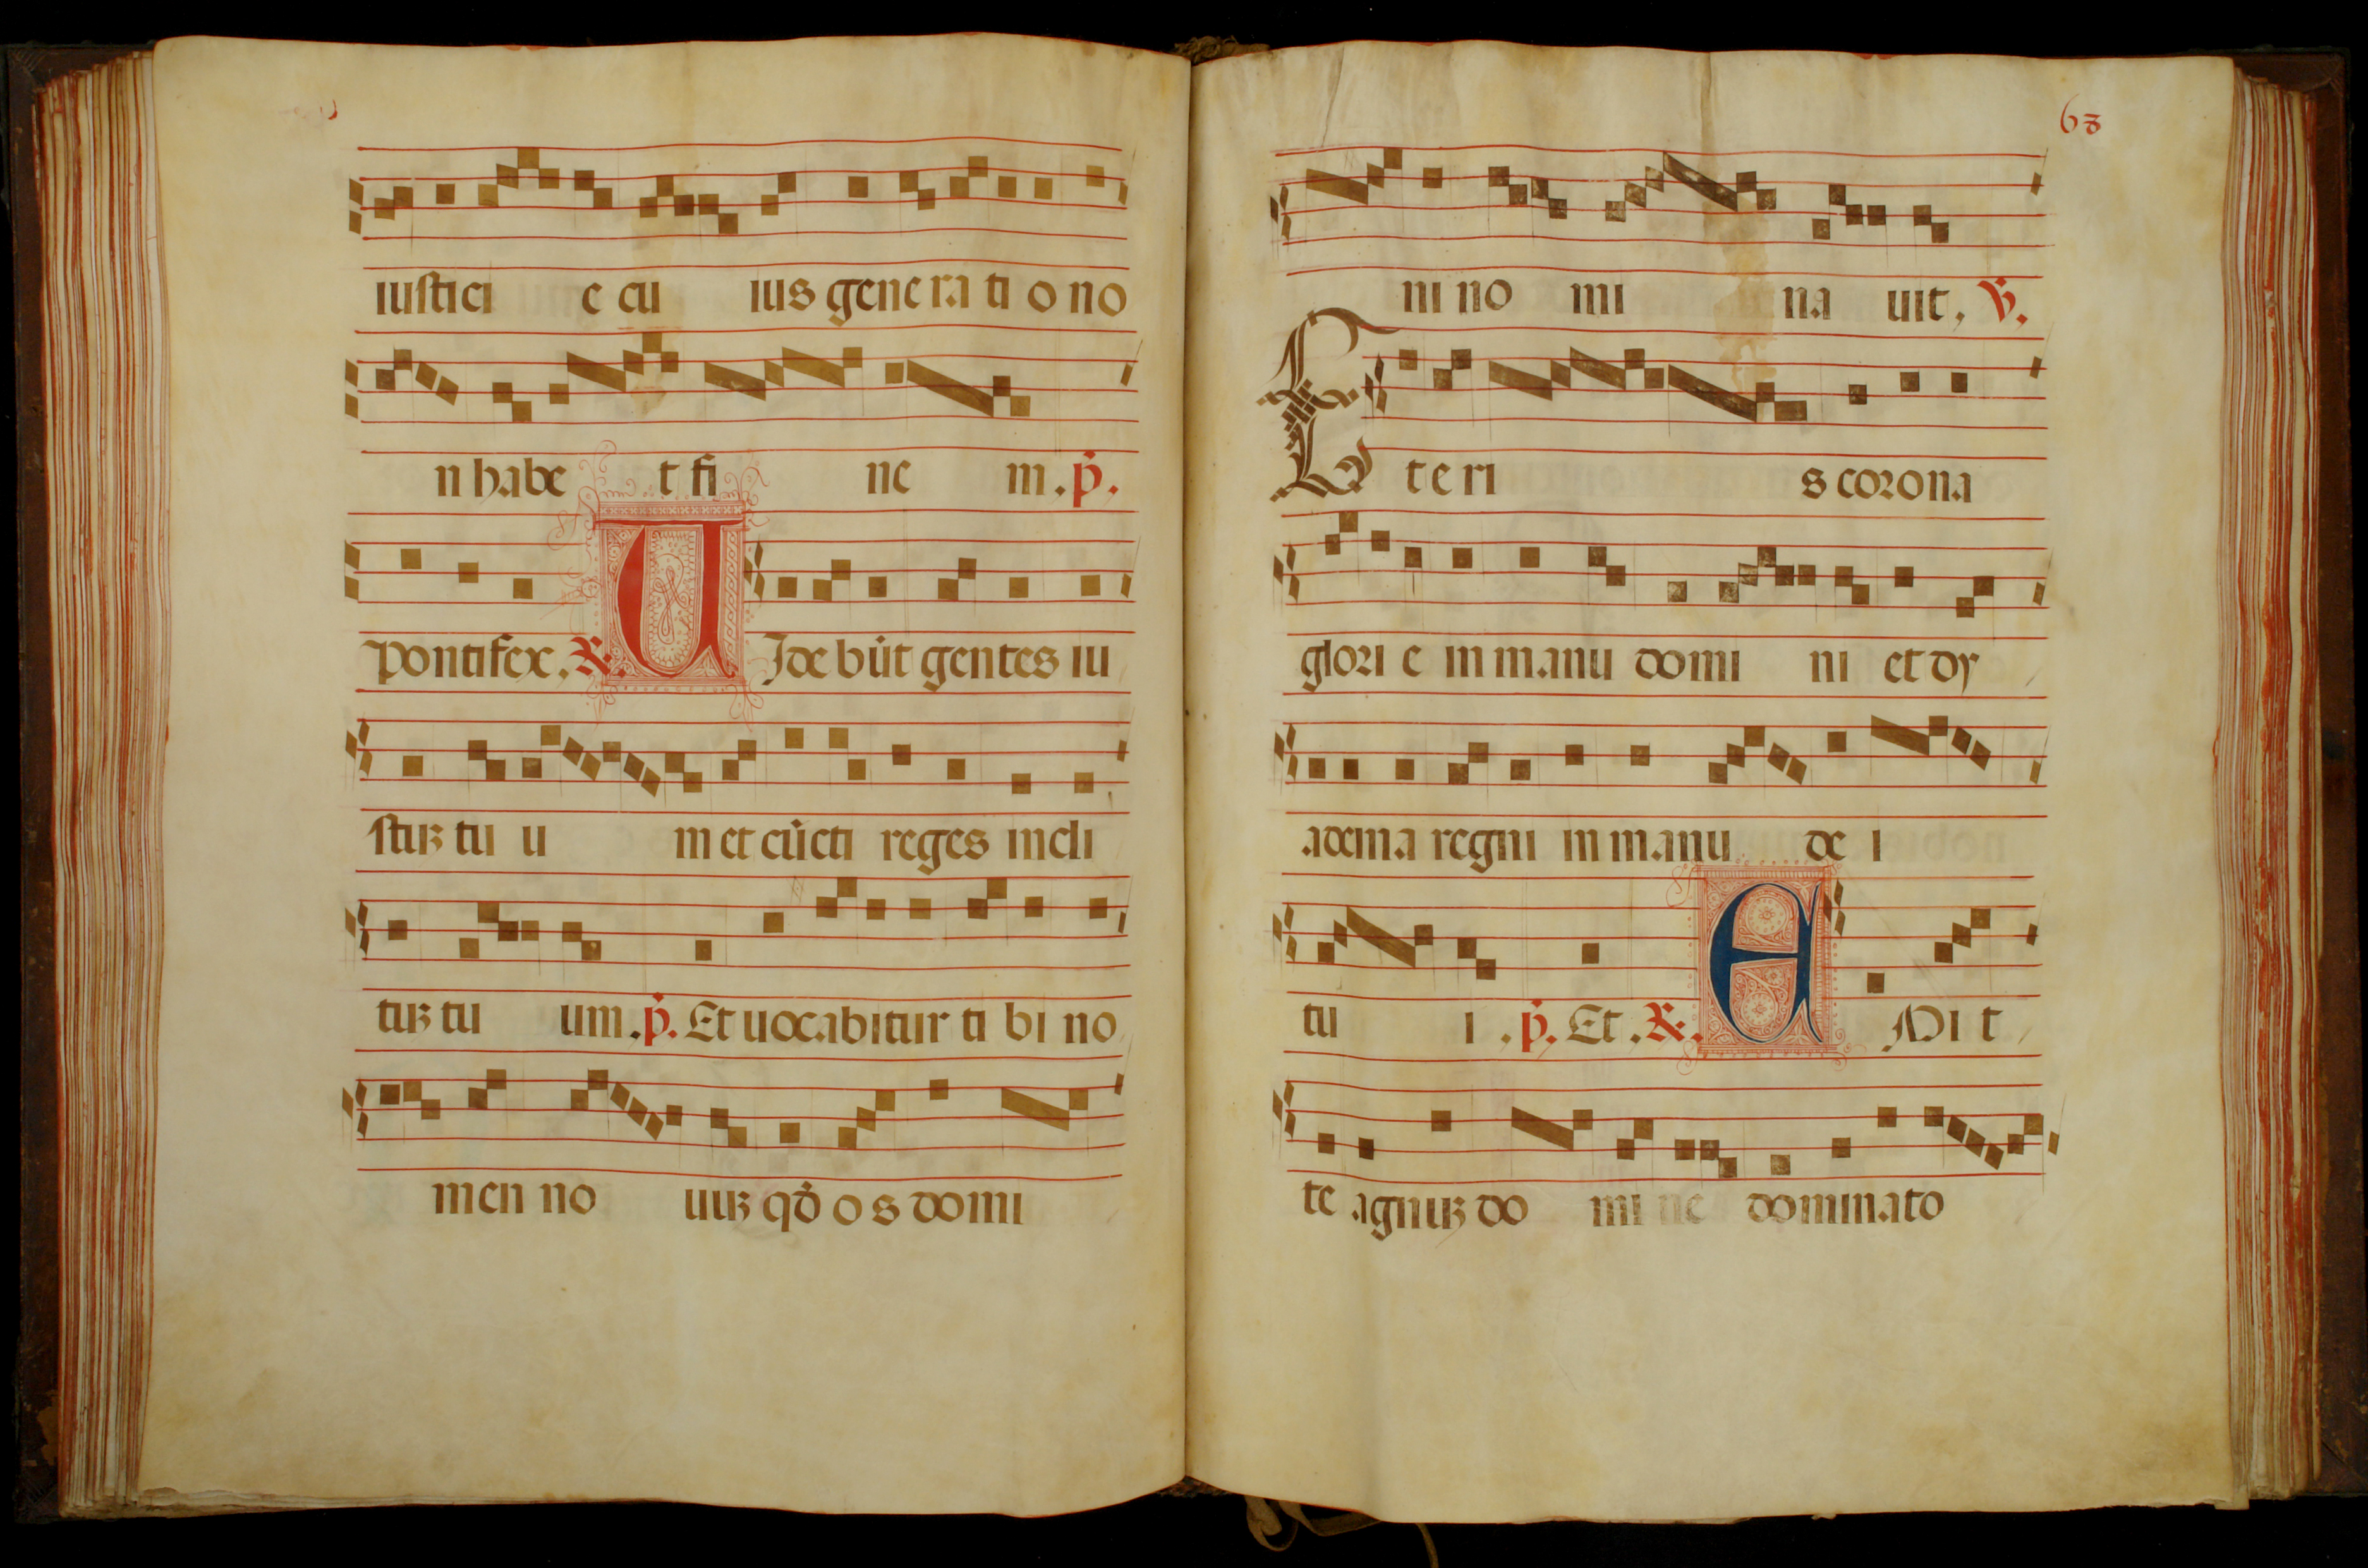 iustici e cu ius gene ra ti o no
n habe t fi ne m . p̃.
pontifex, ℟. U Ide bũt gentes iu
stuꝫ tu u m et cũcti reges incli
tuꝫ tu um . p̃. Et uocabitur ti bi no
men no uuꝫ qđ o s domi
63
ni no mi na uit, ℣.
E t e ri s corona
glori e in manu domi ni et dy
adema regni in manu de i
tu i . p̃. Et . ℟. E Mi t
te agnuꝫ do mi ne dominato